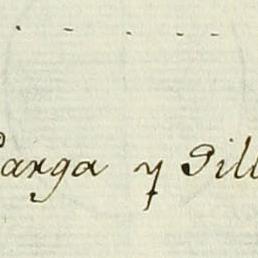 Carga y Sill